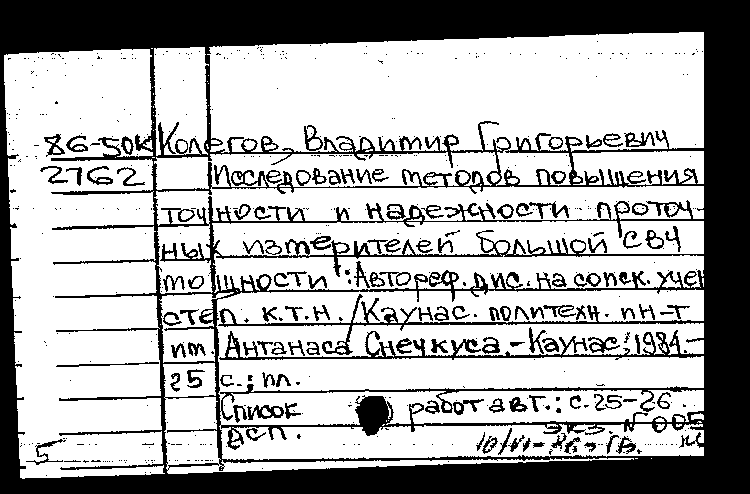 86-50К Колегов, Владимир Григорьевич
2762 Исследование методов повышения
точности и надежности проточ-
ных измерителей большой СВЧ
мощности: Автореф. дис. на соиск. учен
степ. к.т.н. / Каунас. политехн. ин-т
им. Антанаса Снечкуса. - Каунас, 1984. -
25 с.; ил.
Список работ авт.: с. 25-26.
экз. № 005
дсп.
5